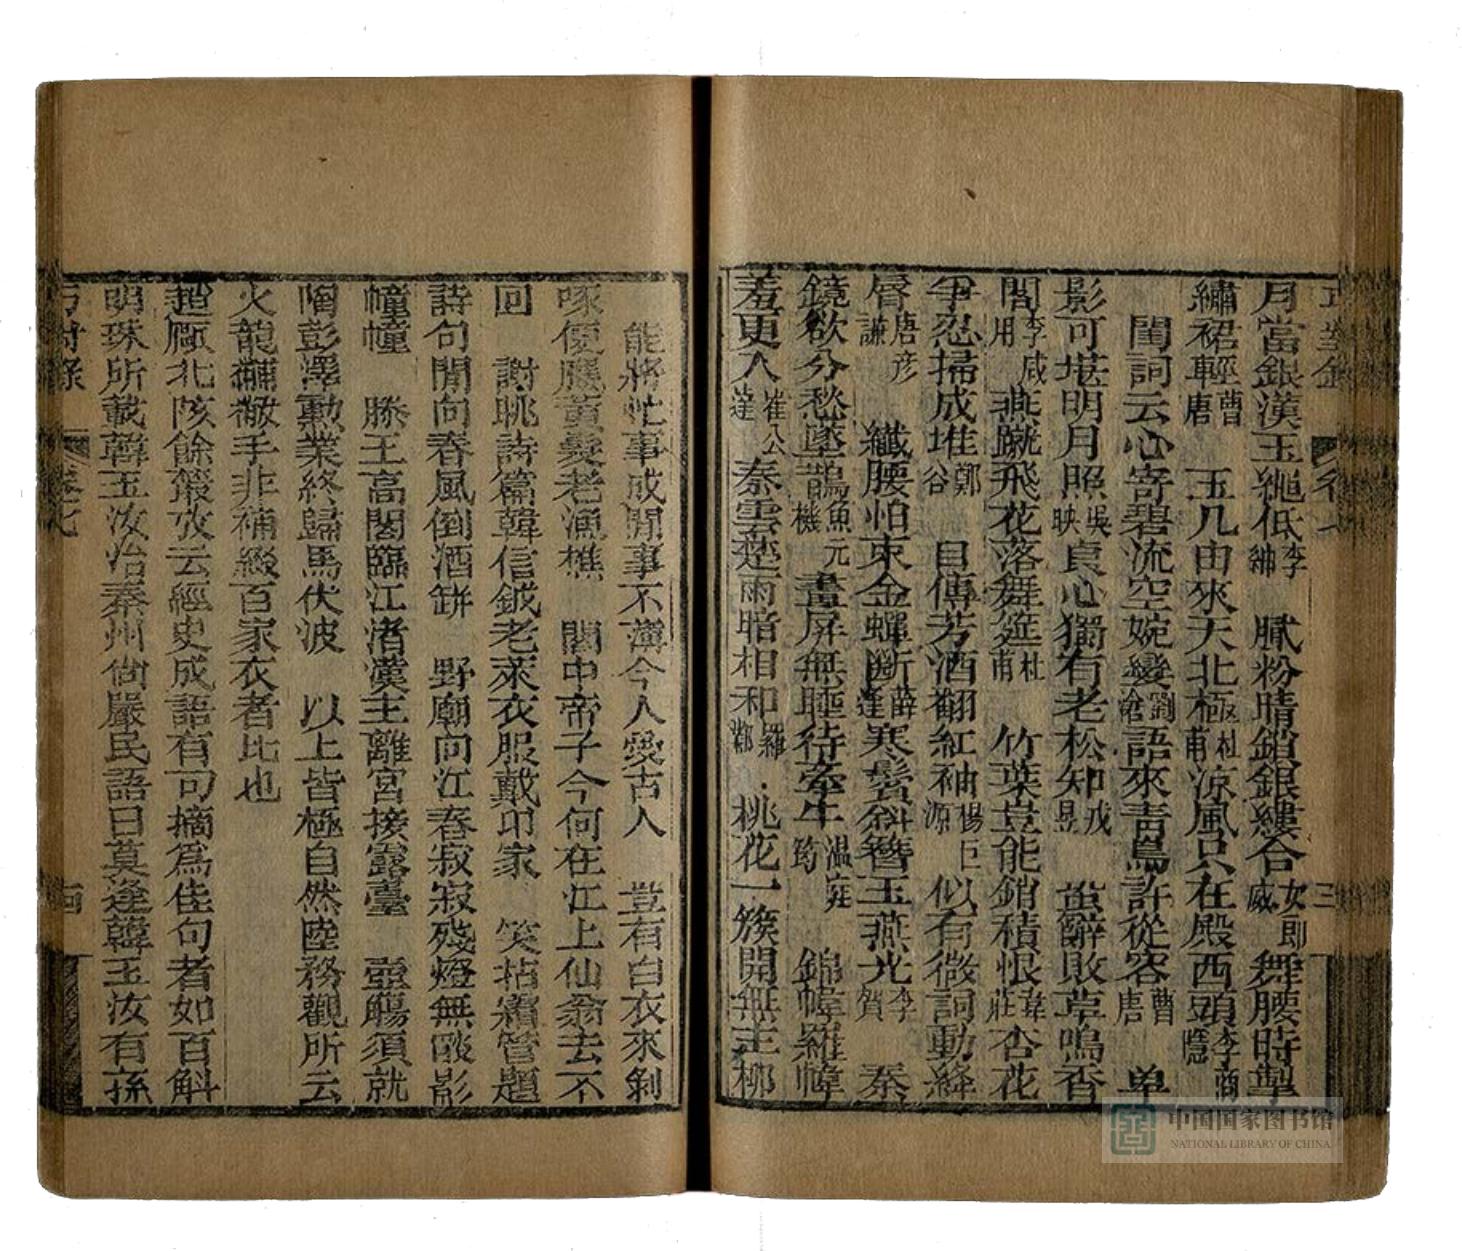 月當銀漢玉繩低李紳　膩粉晴銷銀縷合女郎威　舞腰時掣
繡裙輕曹唐　玉几由來天北極杜甫涼風只在殿西頭李商隱
閨詞云心寄碧流空婉孌劉滄語來青鳥許從容曹唐　单
影可堪明月照吳映貞心獨有老松知戎昱　蛩辭敗草鳴香
閣李咸用　燕蹴飛花落舞筵杜甫　竹葉豈能銷積恨韋莊杏花
爭忍掃成堆鄭谷　自傳芳酒翻紅袖楊巨源　似有微詞動絳
唇唐彥謙　纖腰怕束金蟬斷薛逢寒鬢斜簪玉燕光李賀　秦
鏡欲分愁墮鵲魚元機　畫屏無睡待牽牛溫庭筠　錦幃羅幃
羞更入崔公達　秦雲楚雨暗相和羅鄴　桃花一簇開無主柳
能將忙事成閒事不薄今人愛古人　豈有白衣來剝
啄便應黃髮老漁樵　閣中帝子今何在江上仙翁去不
回　謝眺詩篇韓信鉞老萊衣服戴卬家　笑拈霜管題
詩句閒向春風倒酒缾　野廟向江春寂寂殘燈無燄影
幢幢　滕王高閣臨江渚漢主離宮接露臺　壺觴須就
陶彭澤勳業終歸馬伏波　以上皆極自然陸務觀所云
火龍黼黻手非補綴百家衣者比也
趙甌北陔餘叢攷云經史成語有可摘爲佳句者如百斛
明珠所載韓玉汝治秦州尚嚴民語曰莫逢韓玉汝有孫
巧對錄　卷七